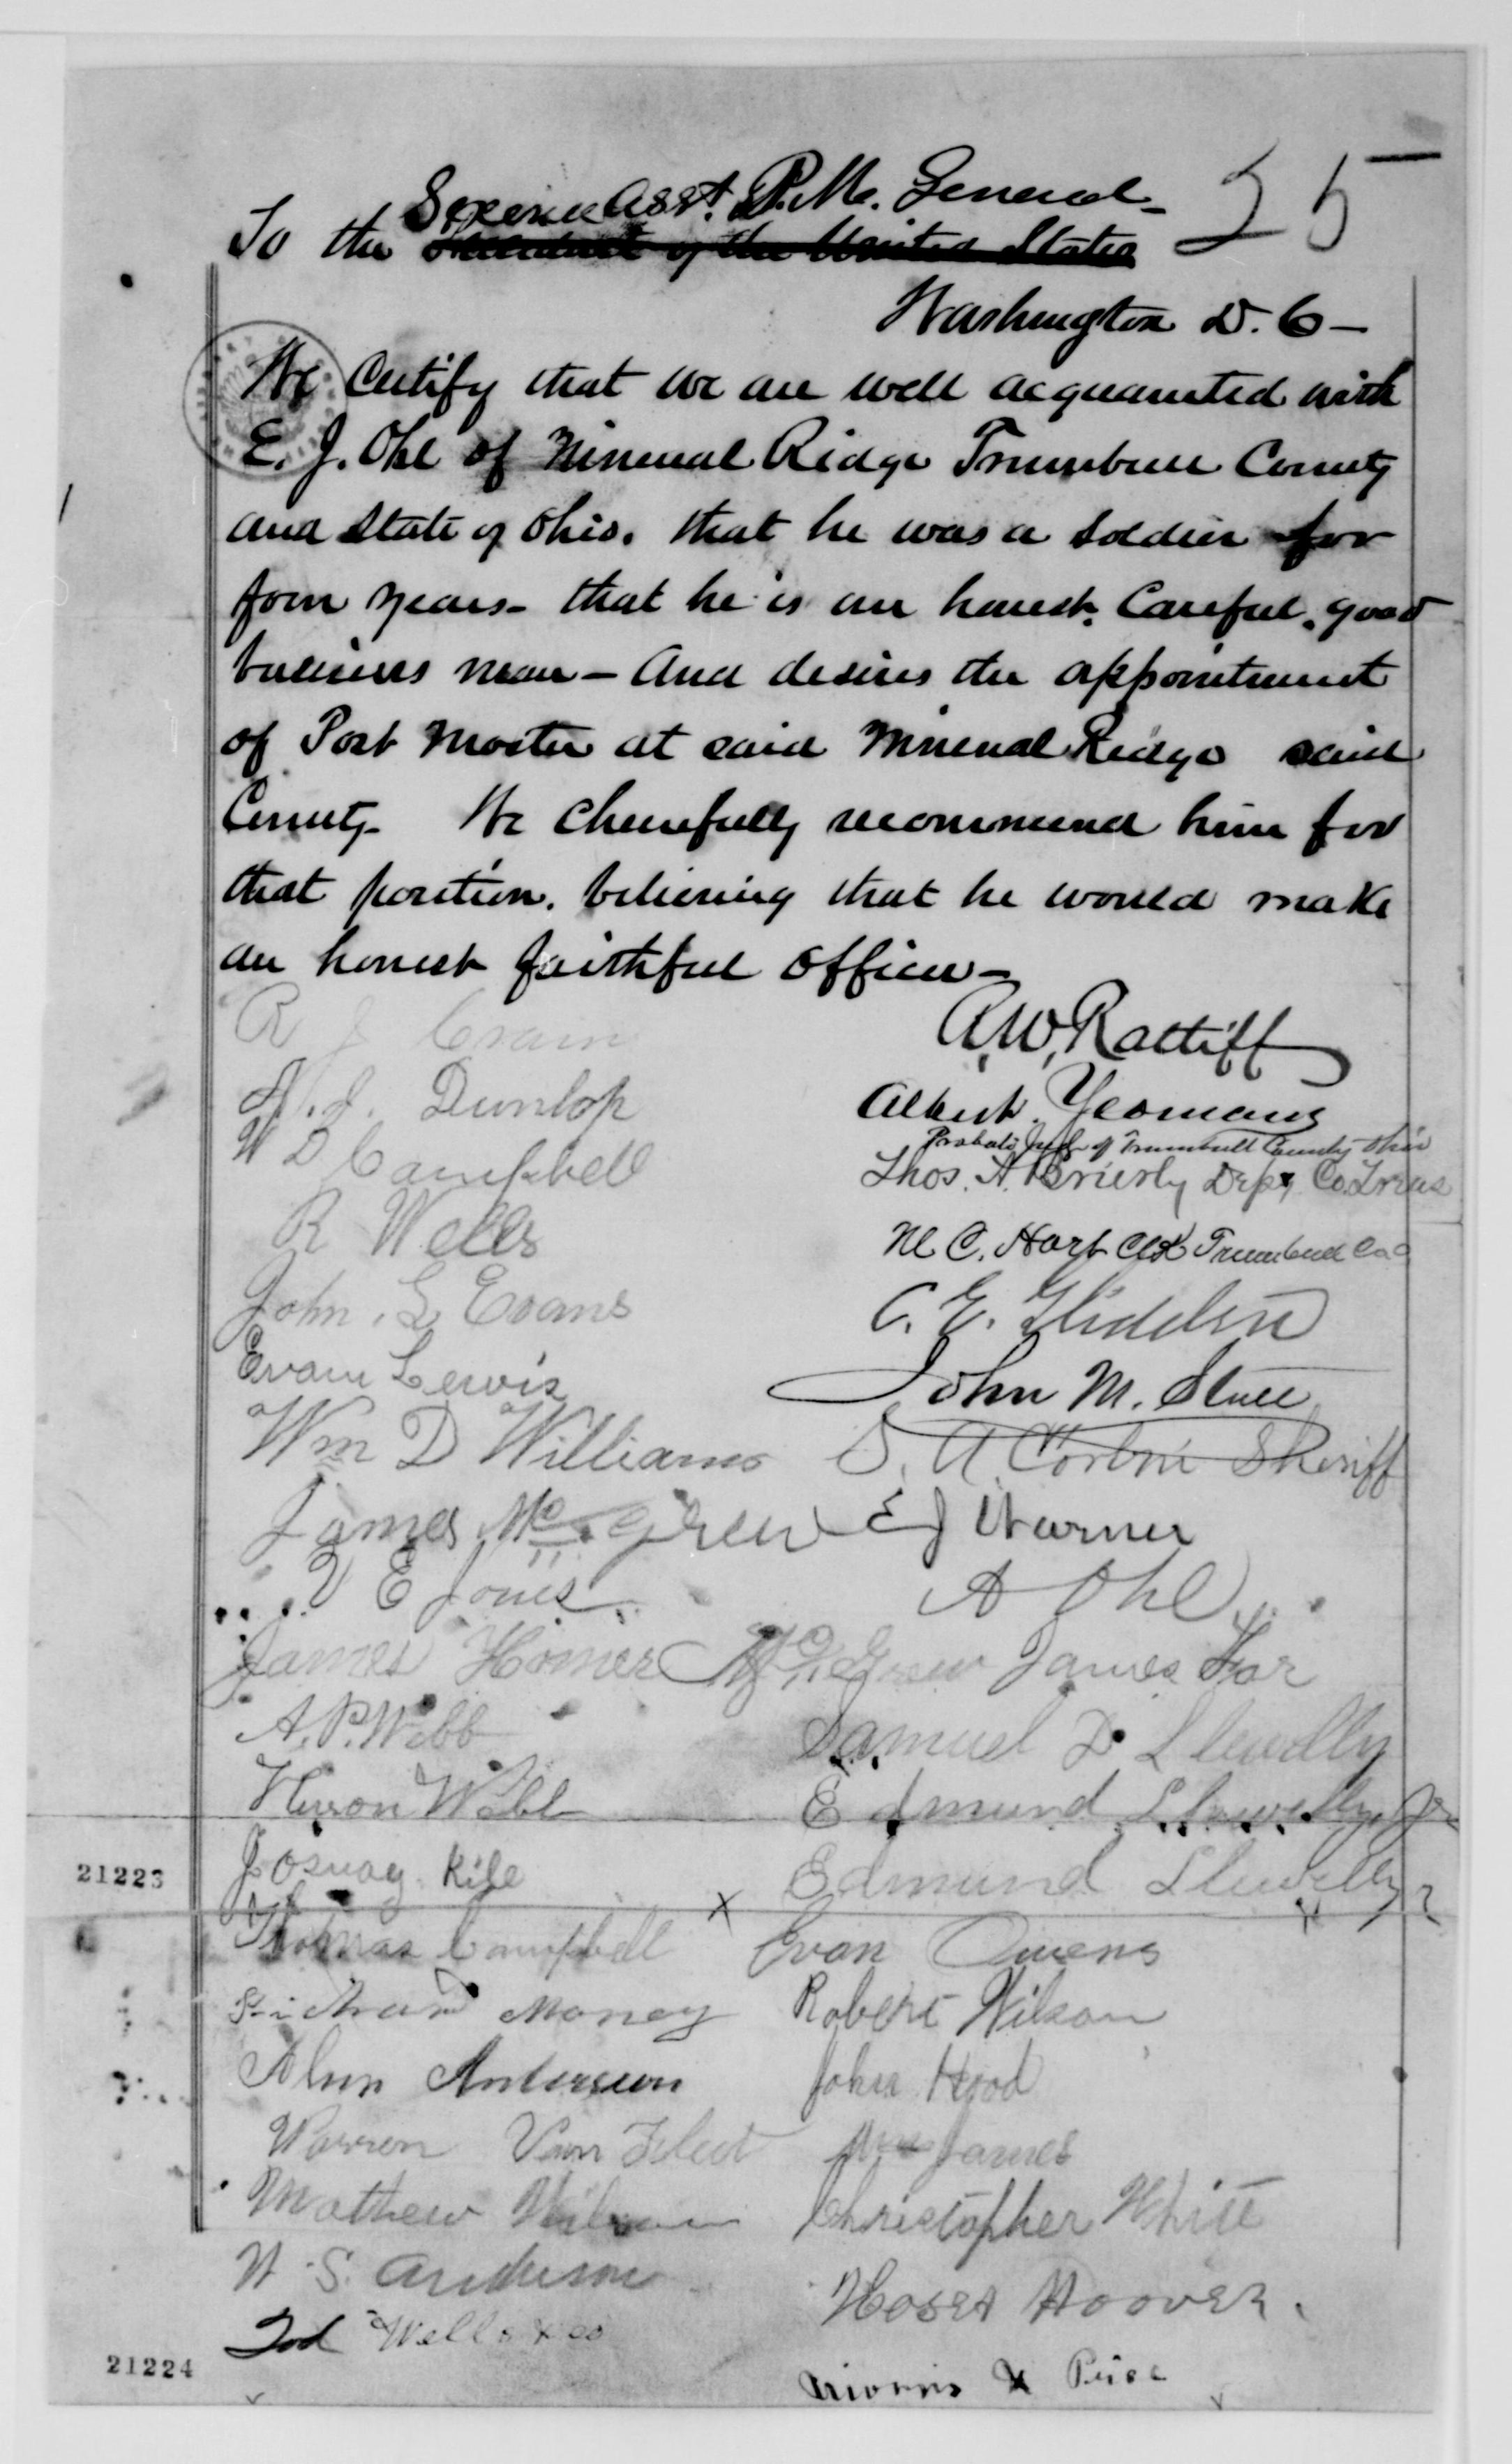 25
Asst. P.M. General-
To the President of the United States
Washington D.C-
We Certify that we are well acquainted with
E. J. Ohl of Mineral Ridge Trumbull County
and State of Ohio. that he was a soldier for
four years- that he is an honest, careful, good
business man- And desires the appointment
of Post Master at said Mineral Ridge said
County- We cheerfully recommend him for
that position, believing that he would make
an honest faithful officer-
R J Crain
A.W. Ratliff
Dunlop
Albert Yeomans
Probate Judge of Trumbull County Ohio
W D Campbell
Thos. A. Brierly Depy Co. Treas
R Wells
M C. Hart Clk Trumbull Co O
John. S. Evans
C. E. Glidden
Evan Lewis
John M. Stull
Wm D Williams
S. A. Corbin Sheriff
James McGrew
E J Warner
E Jones
A Ohl
James Homer McGrew
James
A. P. Webb
Samuel D. Llewelly
Webb
Edmund Llewelly Jr
21223
Kile
Edmund Llewelly
x
Thomas Campbell
Evan Owens
Richard Money
Robert Wilson
Anderson
John Hood
Warren Van Fleet
James
Mathew
Christopher White
W. S. Anderson
Hoover.
Tod Wells & Co
21224
Price